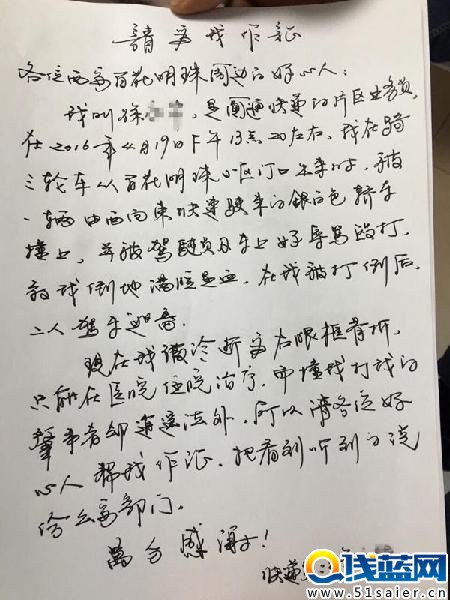 請為我作証
各位西安百花明珠周边的好心人：
我叫徐 是圆通快递的片区业务员
在2016年 月19日下午13点20左右，我在骑
三轮车从百花明珠小区门口出来时，被
一辆由西向东快速驶来的银白色轿车
撞上，并被驾驶员及车上 辱骂殴打，
致我倒地满脸是血，在我被打倒后，
二人驾车逃离
现在我被诊断为右眼框骨折，
只能在医院住院治疗，而撞我打我的
肇事者却逍遥法外，所以请各位好
心人帮我作证，把看到听到的说
给公安部门。
萬分感谢！
快递
浅蓝网
www.51saier.cn